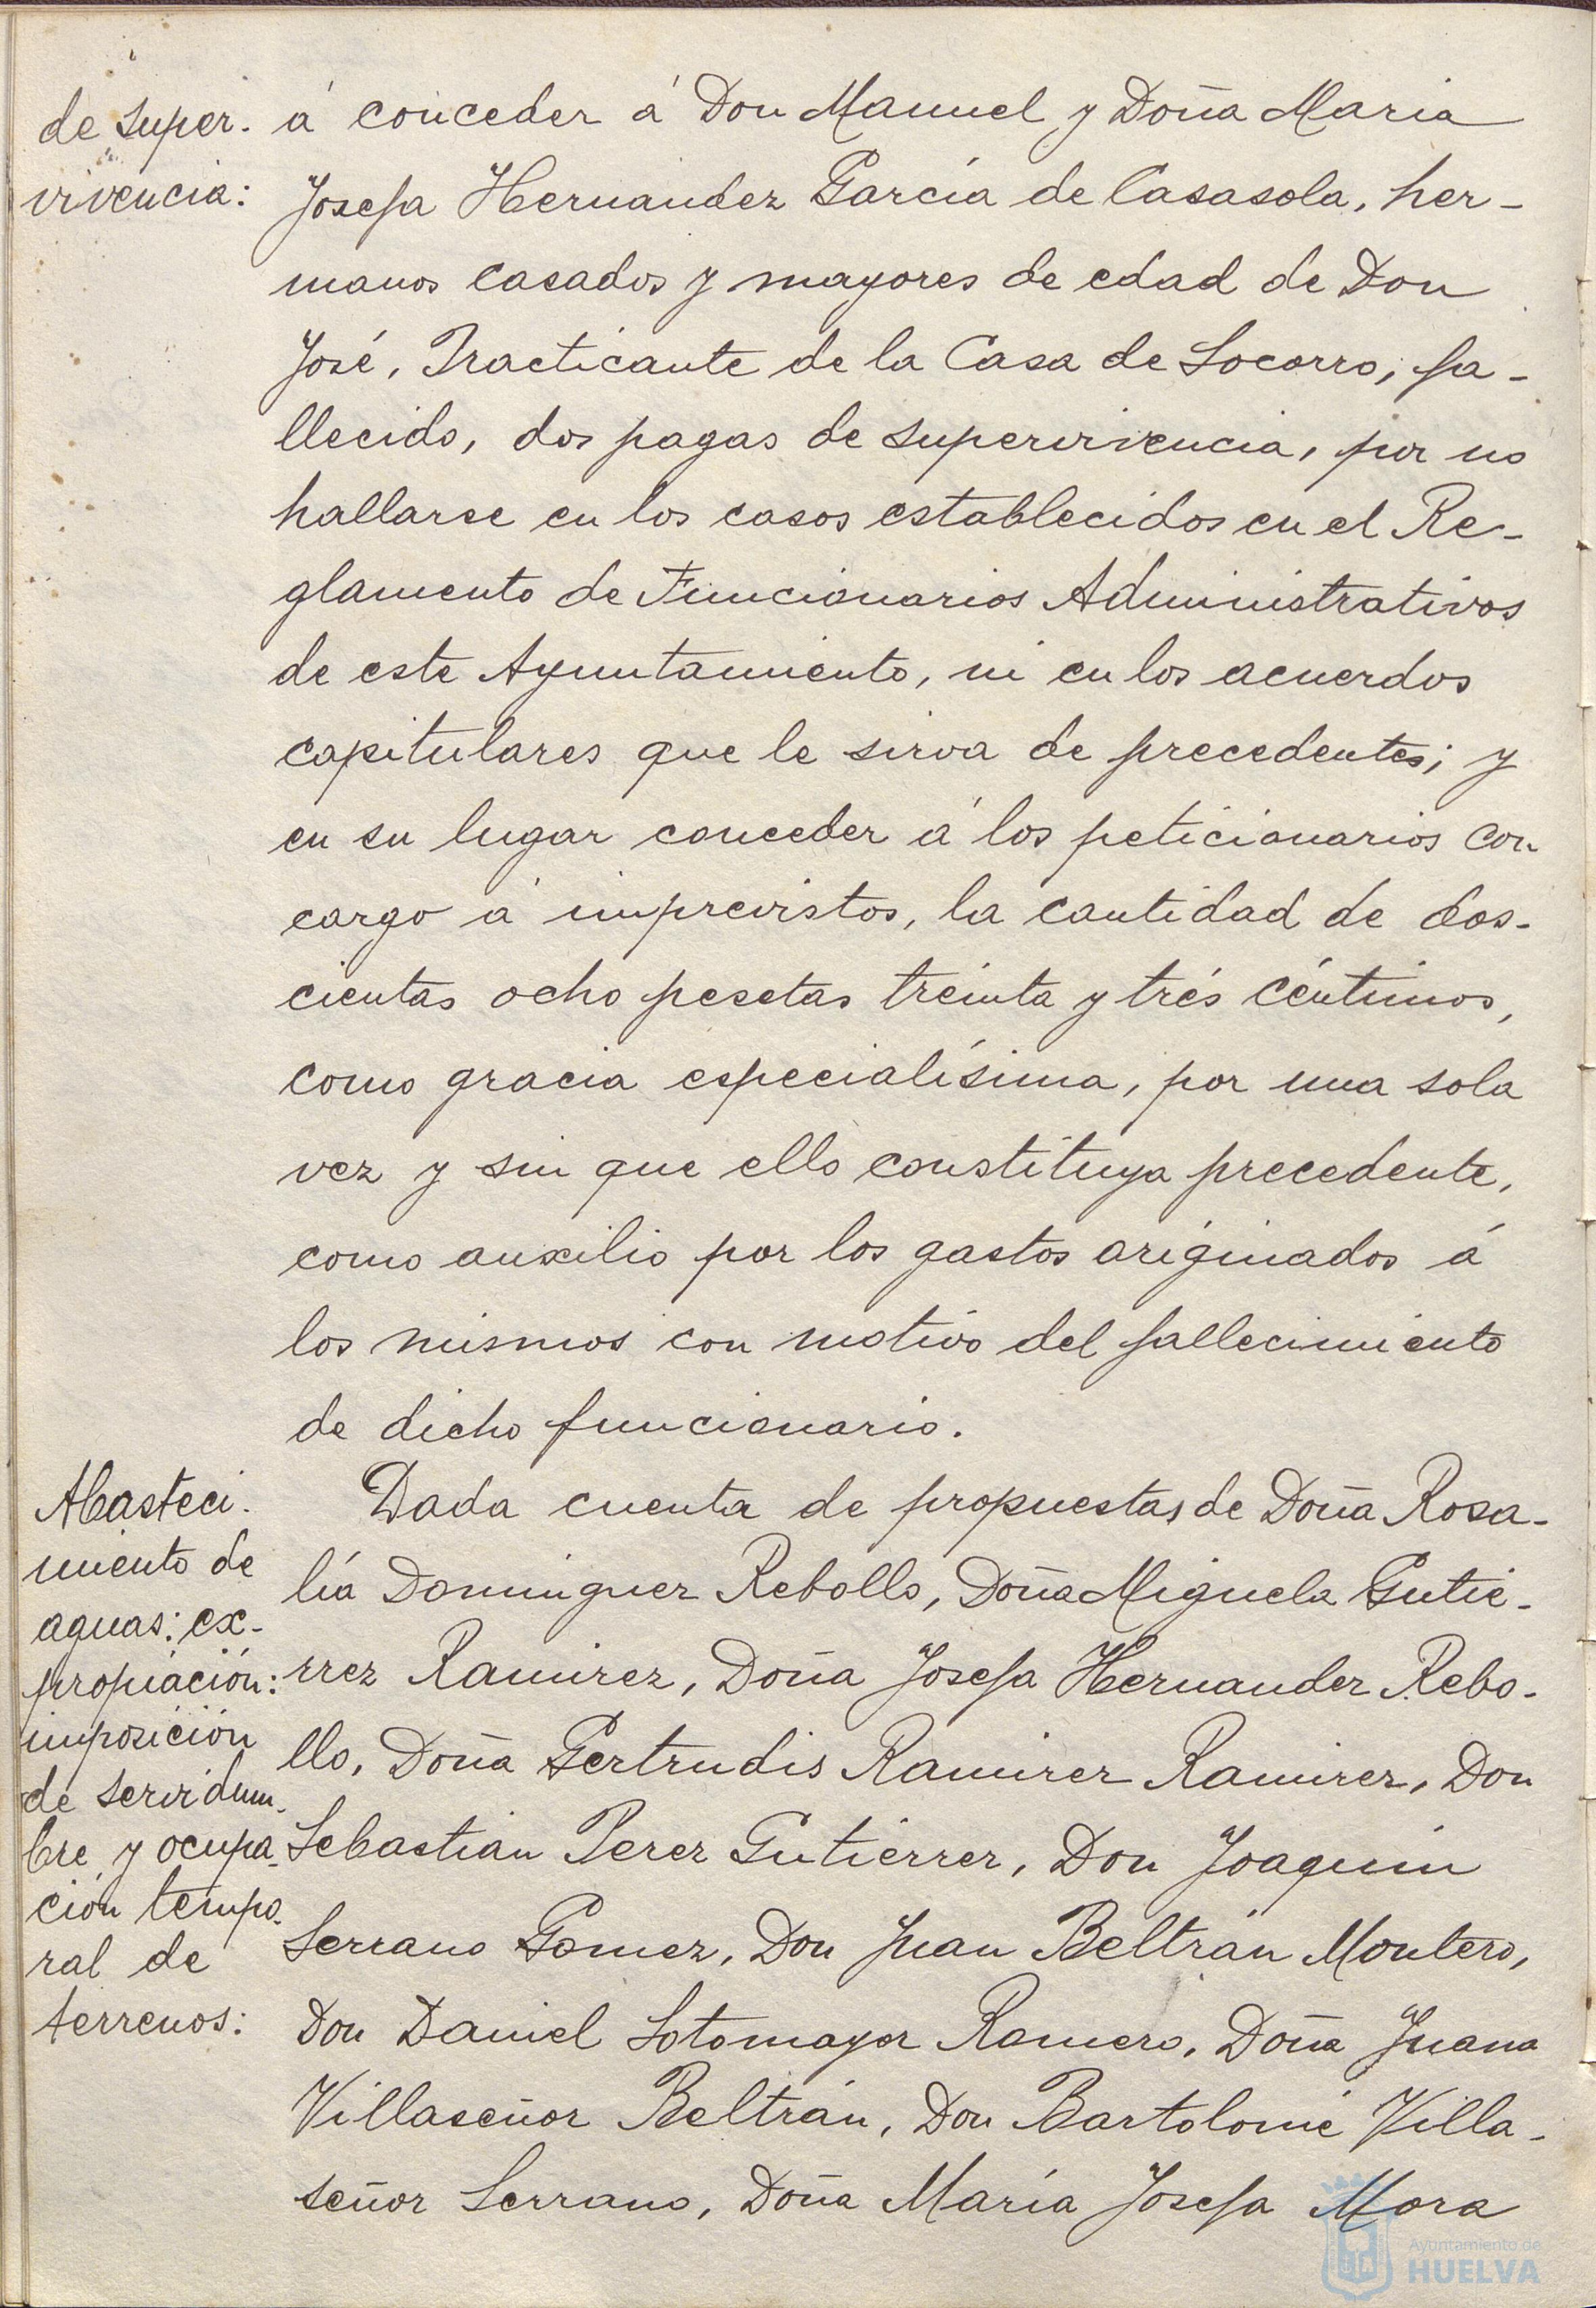 de super-
vivencia:
á conceder á Don Manuel y Doña Maria
Josefa Hernandez García de Casasola, her-
manos casados y mayores de edad de Don
José, Practicante de la Casa de Socorro, fa-
llecido, dos pagas de supervivencia, por no
hallarse en los casos establecidos en el Re-
glamento de Funcionarios Administrativos
de este Ayuntamiento, ni en los acuerdos
capitulares que le sirva de precedentes; y
en su lugar conceder á los peticionarios con
cargo á imprevistos, la cantidad de dos-
cientas ocho pesetas treinta y trés céntimos,
como gracia especialísima, por una sola
vez y sin que ello constituya precedente,
como auxilio por los gastos originados á
los mismos con motivo del fallecimiento
de dicho funcionario.
Abasteci-
miento de
aguas: ex-
propiación:
imposición
de servidum-
bre y ocupa-
ción tempo-
ral de
terrenos:
Dada cuenta de propuestas de Doña Rosa-
lía Dominguez Rebollo, Doña Miguela Gutié-
rrez Ramirez, Doña Josefa Hernandez Rebo-
llo, Doña Gertrudis Ramirez Ramirez, Don
Sebastián Perez Gutiérrez, Don Joaquín
Serrano Gomez, Don Juan Beltrán Montero,
Don Daniel Sotomayor Romero, Doña Juana
Villaseñor Beltrán, Don Bartolomé Villa-
señor Serrano, Doña María Josefa Mora
Ayuntamiento de
HUELVA